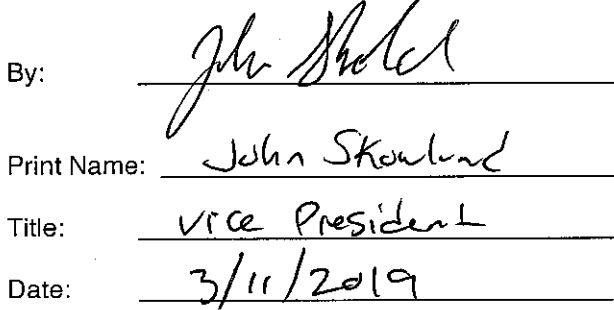 By: John
Print Name: John Skowlund
Title: Vice President
Date: 3/11/2019